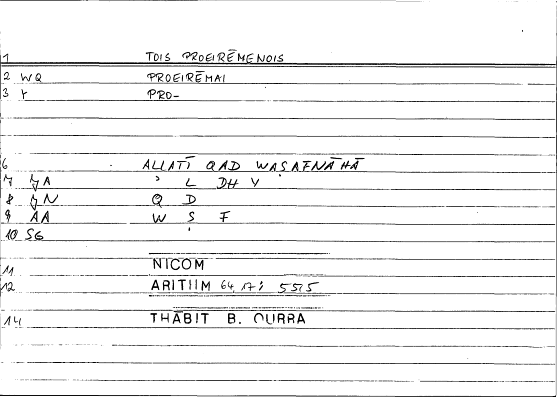 1 TOIS PROEIRĒMENOIS
2 WQ PROEIRĒMAI
3 PRO-
6 ALLATĪ QAD WAṢAFNĀHĀ
7 YA ' L DH Y
8 YN Q D
9 AA W Ṣ F
10 SG '
11 NICOM
12 ARITIIM 64, 17; 55,5
14 THĀBIT B. QURRA